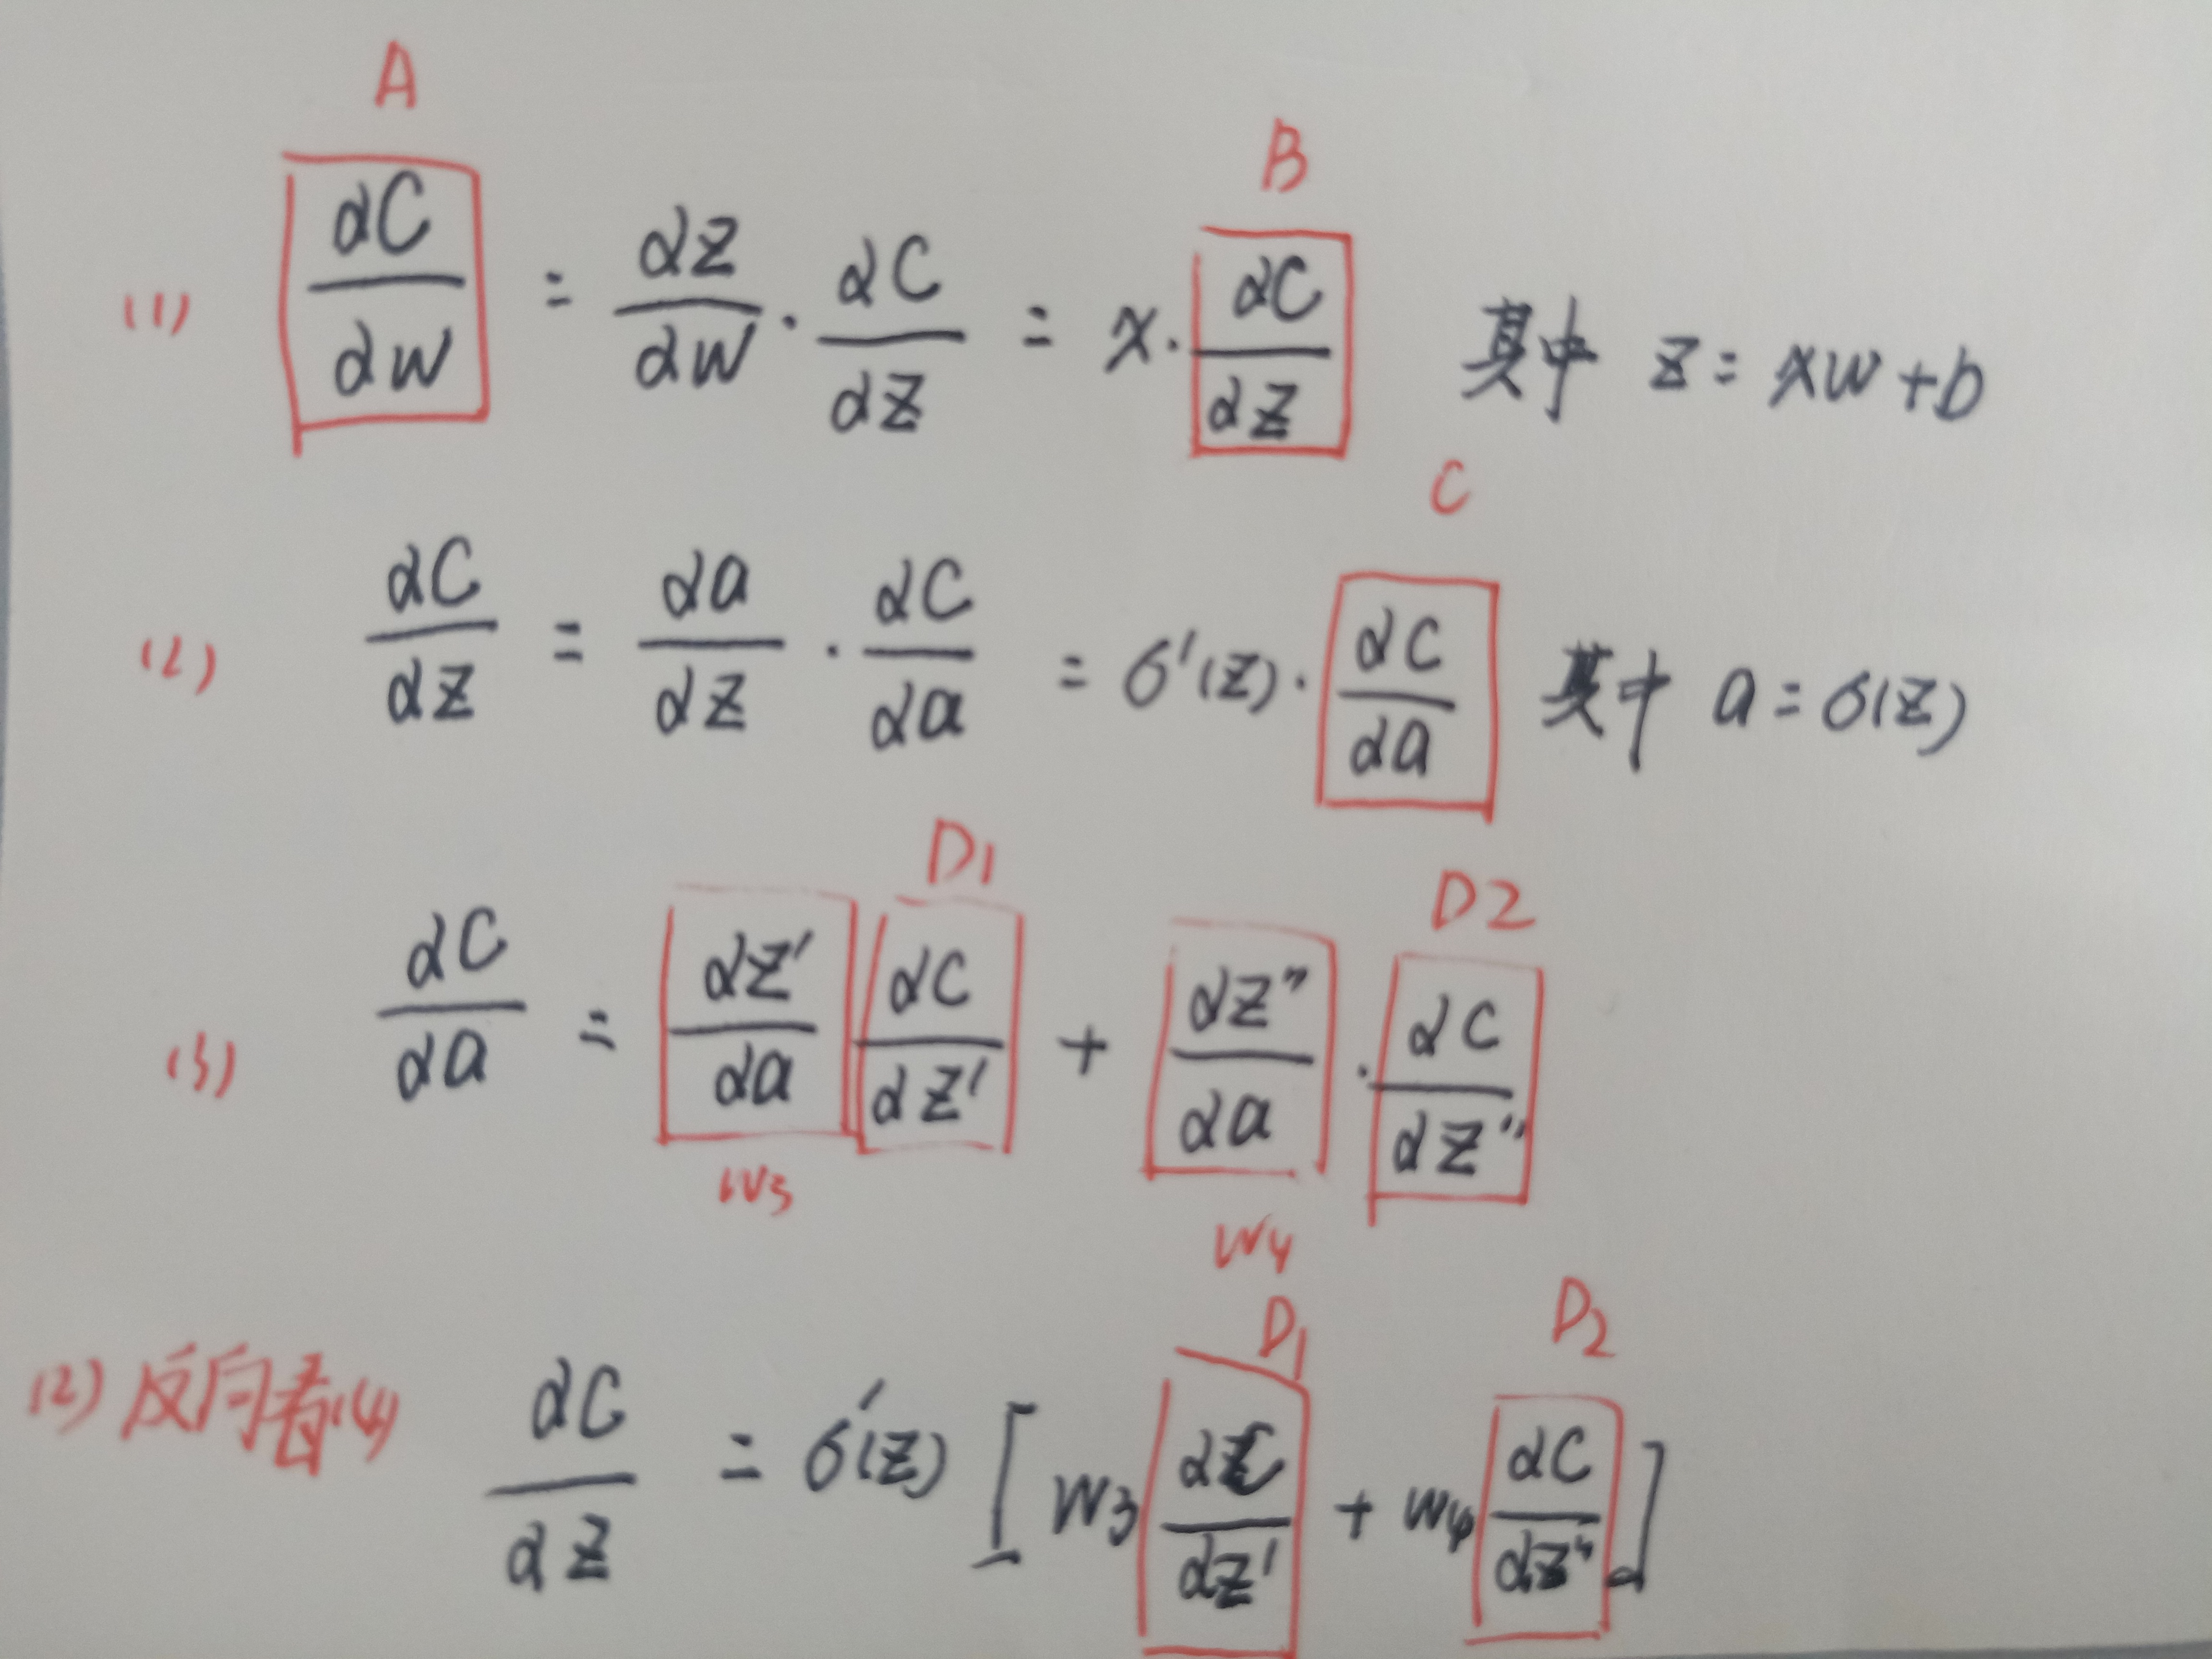 A
B
(1) ∂C/∂w = ∂z/∂w · ∂C/∂z = x · ∂C/∂z 其中 z = xw + b
C
(2) ∂C/∂z = ∂a/∂z · ∂C/∂a = σ'(z) · ∂C/∂a 其中 a = σ(z)
D1
D2
(3) ∂C/∂a = ∂z'/∂a ∂C/∂z' + ∂z''/∂a · ∂C/∂z''
W3
W4
D1 D2
(2) 反向看(4) ∂C/∂z = σ'(z) [ w3 ∂C/∂z' + w4 ∂C/∂z'' ]